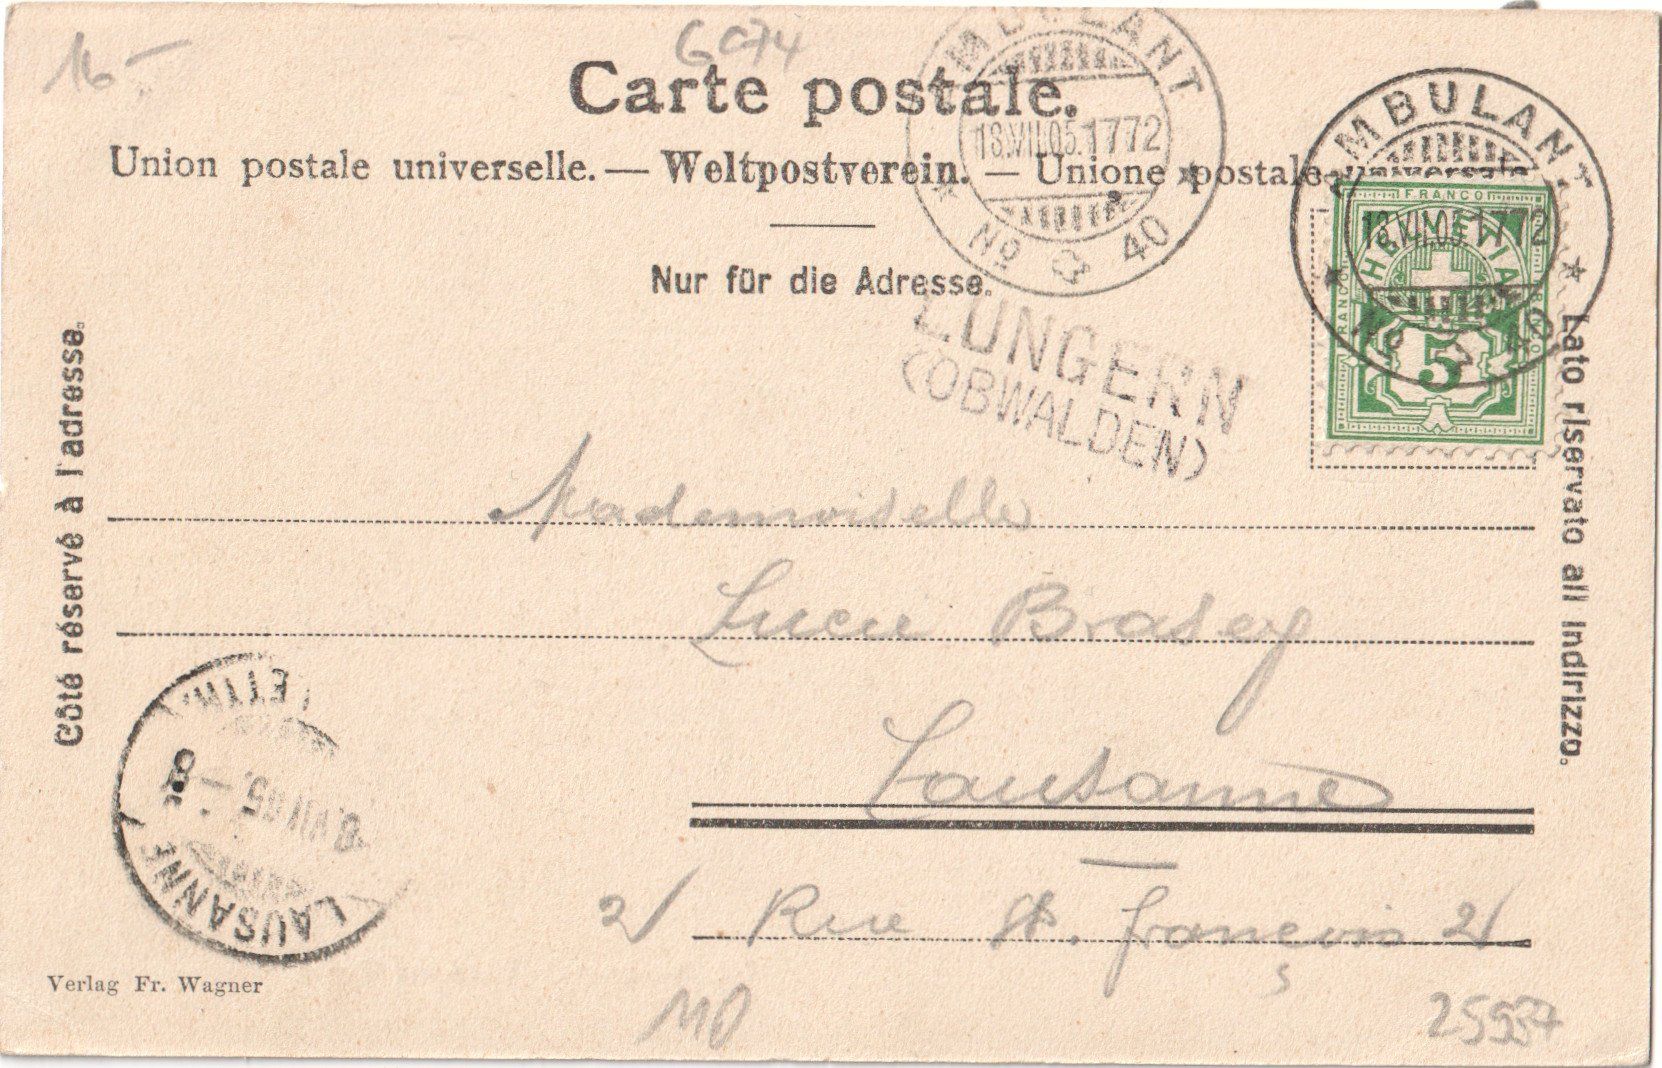 16-
6074
Carte postale.
Union postale universelle. — Weltpostverein. — Unione postale universale
Nur für die Adresse.
AMBULANT
18.VII.05.1772
No 40
AMBULANT
18.VII.05.1772
No 40
FRANCO
HELVETIA
5
LUNGERN
(OBWALDEN)
Côté réservé à l'adresse.
Lato riservato all indrizzo.
Mademoiselle
Lucie Brasey
Lausanne
2/ Rue St. François 2/
LAUSANNE
VII.05.-8
Verlag Fr. Wagner
25937